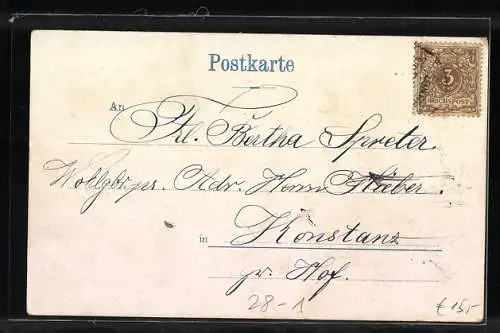 Postkarte
3
REICHSPOST
An
Frl. Bertha Spreter
Adr. Herrn Kleber.
in Konstanz
pr. Hof.
28-1
€ 15,-